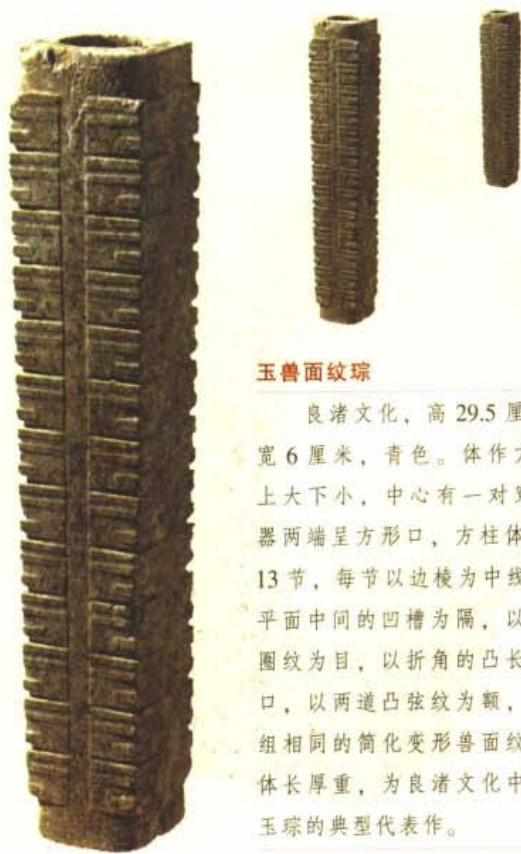 玉兽面纹琮
良渚文化，高 29.5 厘
宽 6 厘米，青色。体作方
上大下小，中心有一对
器两端呈方形口，方柱体
13 节，每节以边棱为中线
平面中间的凹槽为隔，以
圈纹为目，以折角的凸长
口，以两道凸弦纹为额，
组相同的简化变形兽面纹
体长厚重，为良渚文化中
玉琮的典型代表作。